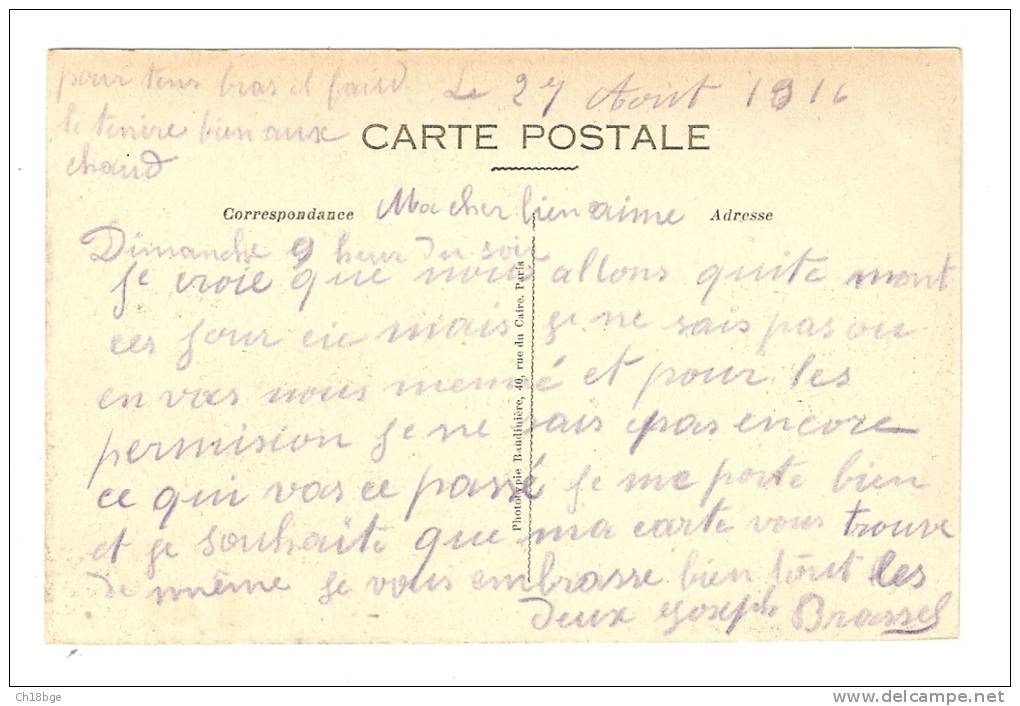 pour tens bras il faud
le tenire bien aux
chaud
Le 27 Aout 1916
CARTE POSTALE
Correspondance
Adresse
Ma cher bien aime
Dimanche 9 heur du soir
Je croie que nous allons quite mont
ces jour cie mais je ne sais pas ou
en vas nous menné et pour les
permision je ne sais pas encore
ce qui vas ce passé je me porte bien
et je souhaite que ma carte vous trouve
de même je vous embrasse bien tout les
deux Joseph Brassel
Phototypie Baudinière, 40, rue du Caire, Paris
Ch18bge
www.delcampe.net